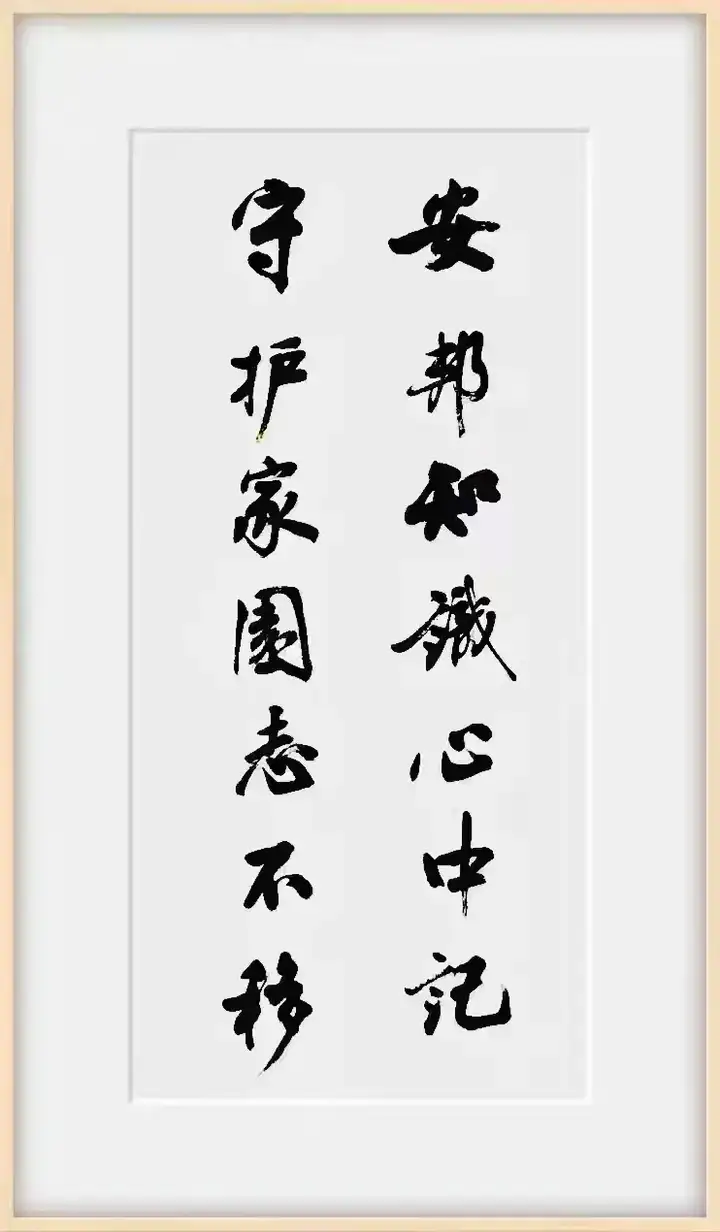 安邦知識心中記
守护家園志不移